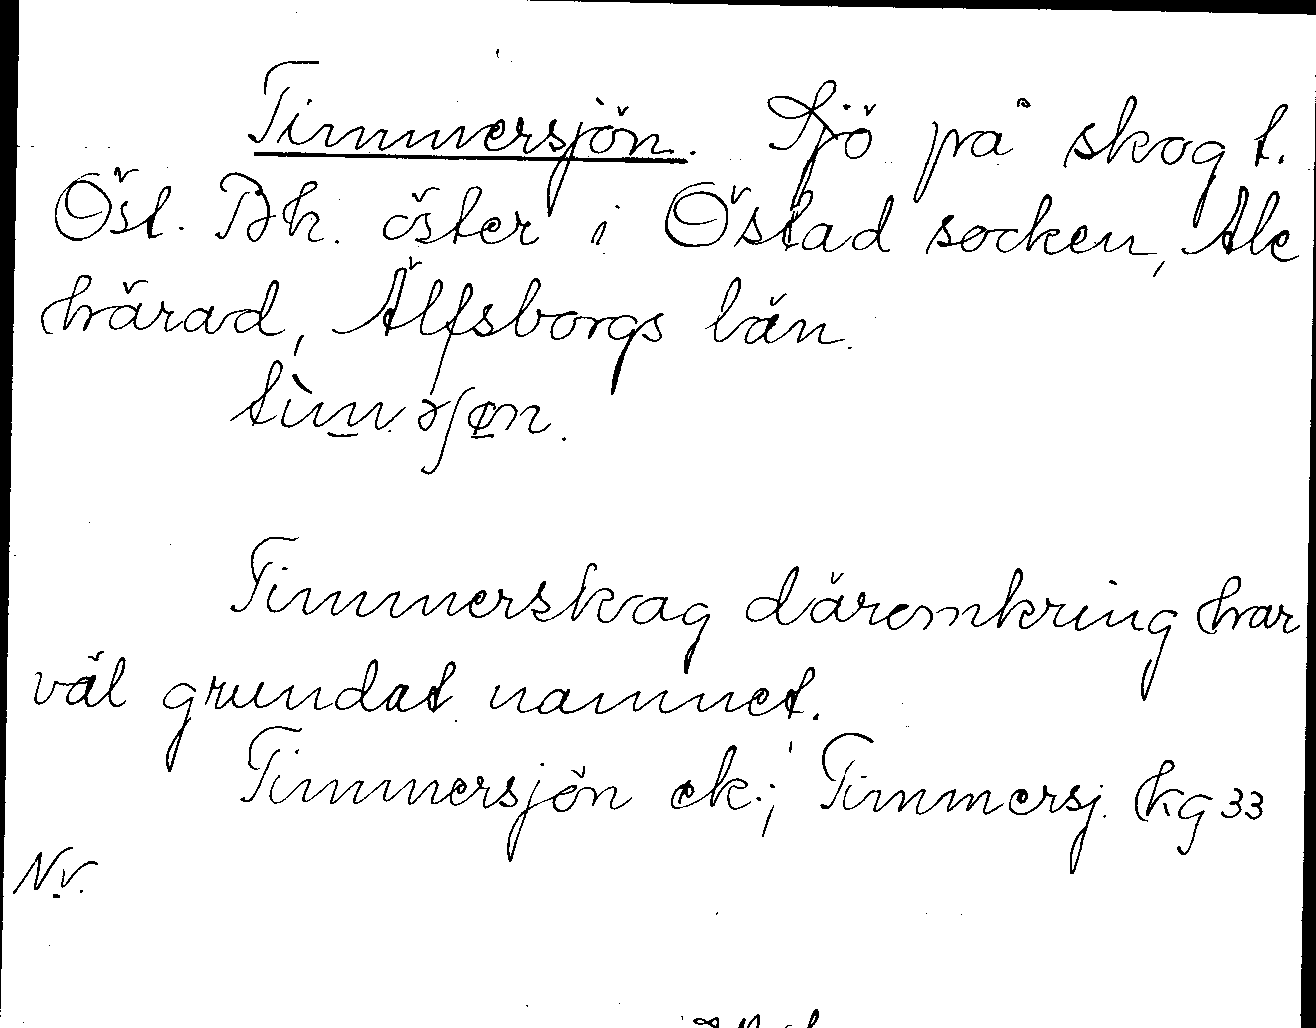 Timmersjön. Sjö på skog t.
Öst. Bk. öster i Östad socken, Ale
härad, Älfsborgs län.
Timmerskog däromkring har
väl grundat namnet.
Timmersjön ek.; Timmersj. hkg 33
N.V.